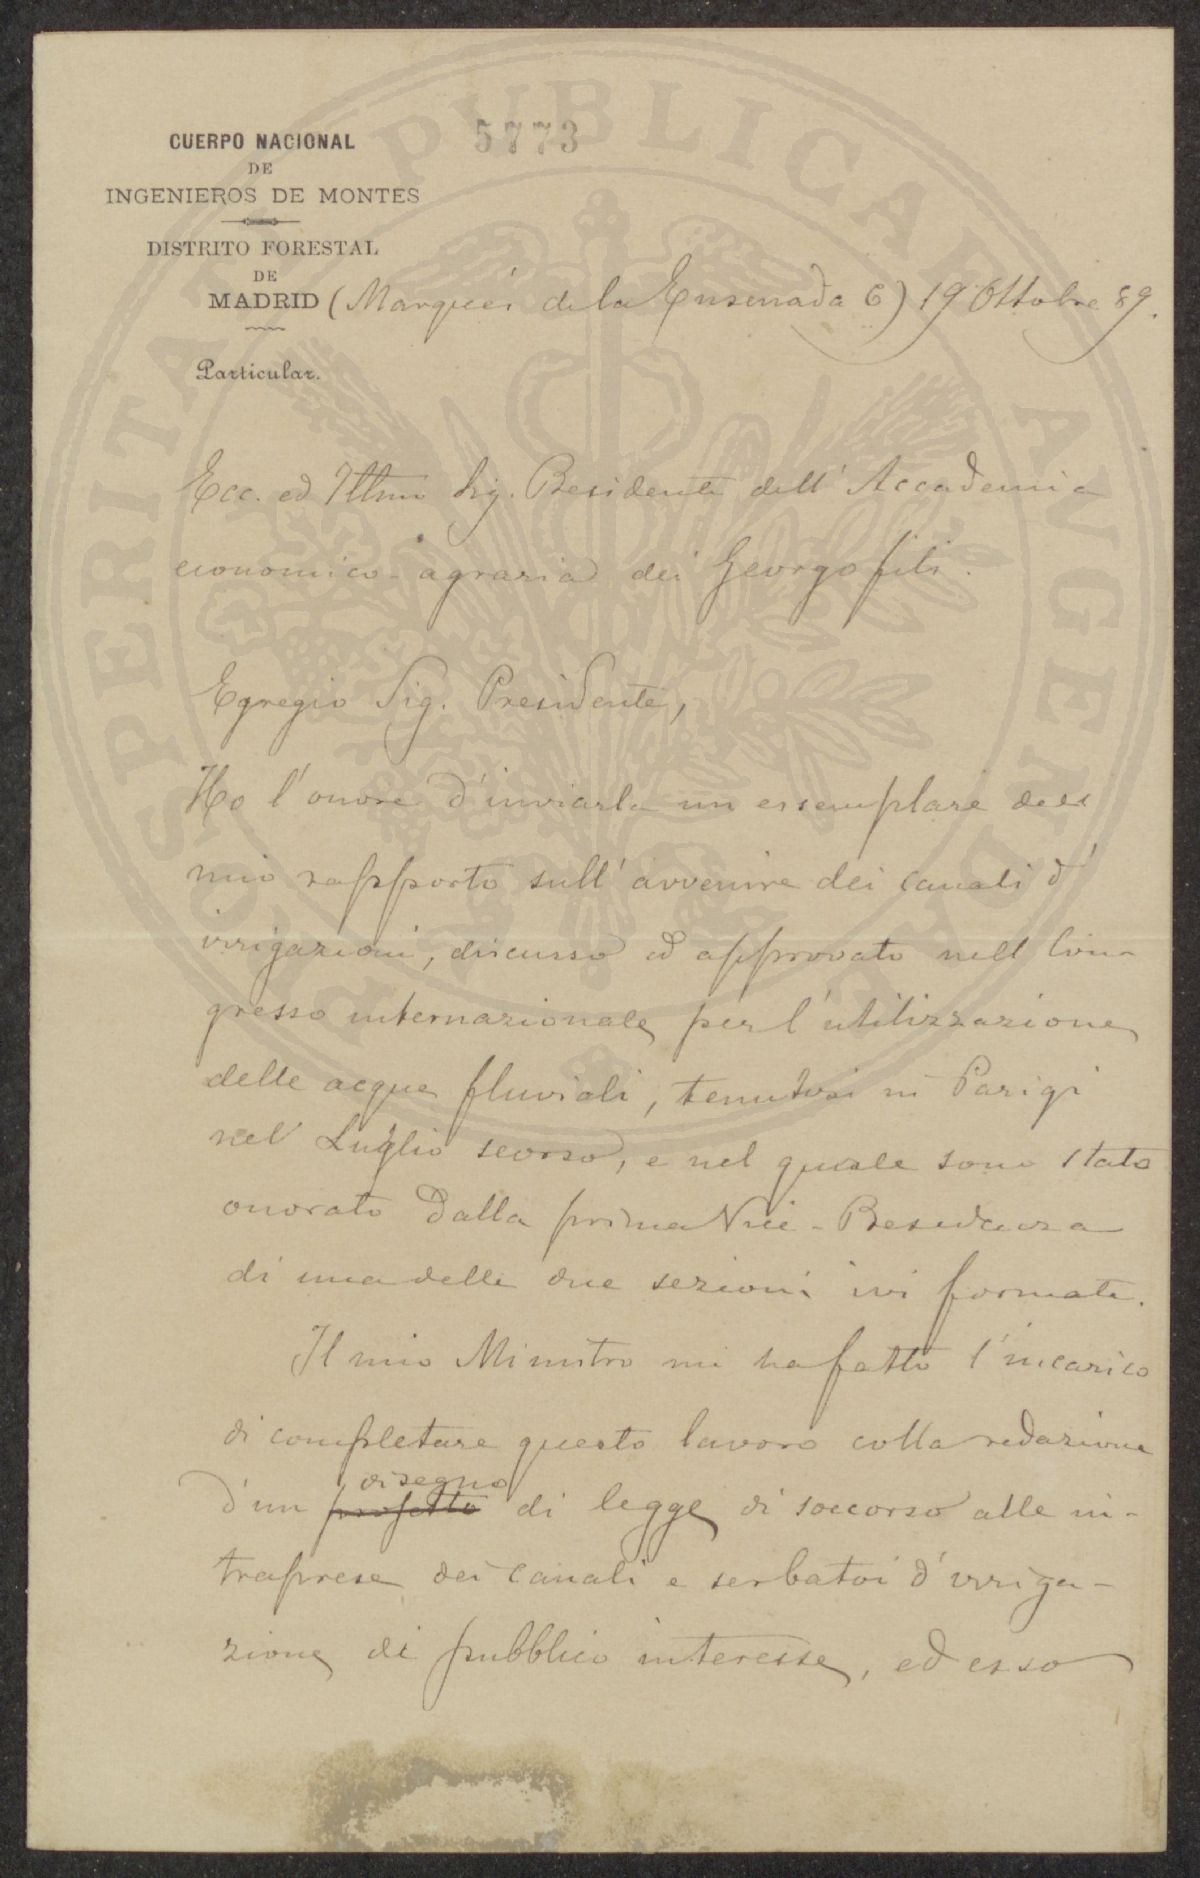 5773
CUERPO NACIONAL
DE
INGENIEROS DE MONTES
DISTRITO FORESTAL
DE
MADRID (Marqués de la Ensenada 6) 19 Ottobre 89.
Particular.
PROSPERITATI PUBLICAE AUGENDAE
Ecc. ed Illmo Sig. Presidente dell' Accademia
economico-agraria dei Georgofili.
Egregio Sig. Presidente,
Ho l'onore d'inviarle un essemplare del
mio rapporto sull' avvenire dei canali d'
irrigazioni, discusso ed approvato nell Con-
gresso internazionale per l'utilizzazione
delle acque fluviali, tenutosi in Parigi
nel Luglio scorso, e nel quale sono stato
onorato dalla prima Vice-Presidenza
di una delle due sezioni ivi formate.
Il mio Ministro mi ha fatto l'incarico
di completare questo lavoro colla redazione
disegno
d'un progetto di legge di soccorso alle in-
traprese dei canali e serbatoi d'irriga-
zione di pubblico interesse, ed esso